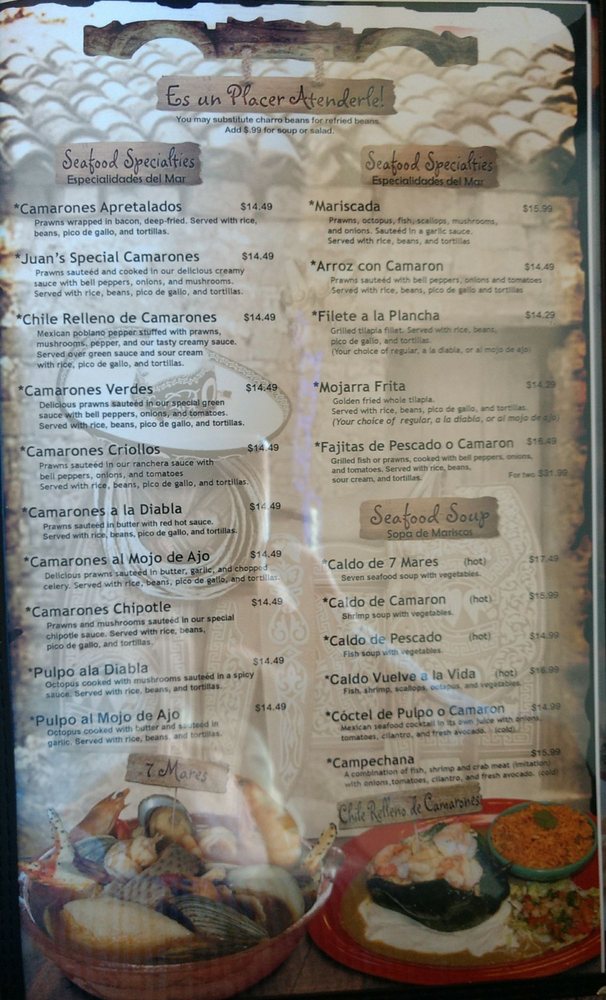 Es un Placer Atenderle!
You may substitute charro beans for refried beans.
Add $.99 for soup or salad.
Seafood Specialties
Especialidades del Mar
*Camarones Apretalados $14.49
Prawns wrapped in bacon, deep-fried. Served with rice,
beans, pico de gallo, and tortillas.
*Juan's Special Camarones $14.49
Prawns sauteéd and cooked in our delicious creamy
sauce with bell peppers, onions, and mushrooms.
Served with rice, beans, pico de gallo, and tortillas.
*Chile Relleno de Camarones $14.49
Mexican poblano pepper stuffed with prawns,
mushrooms, pepper, and our tasty creamy sauce.
Served over green sauce and sour cream
with rice, pico de gallo, and tortillas.
*Camarones Verdes $14.49
Delicious prawns sauteed in our special green
sauce with bell peppers, onions, and tomatoes.
Served with rice, beans, pico de gallo, and tortillas.
*Camarones Criollos $14.49
Prawns sauteéd in our ranchera sauce with
bell peppers, onions, and tomatoes
Served with rice, beans, pico de gallo, and tortillas.
*Camarones a la Diabla $14.49
Prawns sauteed in butter with red hot sauce.
Served with rice, beans, pico de gallo, and tortillas.
*Camarones al Mojo de Ajo $14.49
Delicious prawns sauteed in butter, garlic, and chopped
celery. Served with rice, beans, pico de gallo, and tortillas.
*Camarones Chipotle $14.49
Prawns and mushrooms sauteéd in our special
chipotle sauce. Served with rice, beans,
pico de gallo, and tortillas.
*Pulpo ala Diabla $14.49
Octopus cooked with mushrooms sauteed in a spicy
sauce. Served with rice, beans, and tortillas.
*Pulpo al Mojo de Ajo $14.49
Octopus cooked with butter and sauteed in
garlic. Served with rice, beans, and tortillas.
7 Mares
Seafood Specialties
Especialidades del Mar
*Mariscada $15.99
Prawns, octopus, fish, scallops, mushrooms,
and onions. Sauteéd in a garlic sauce.
Served with rice, beans, and tortillas
*Arroz con Camaron $14.49
Prawns sauteed with bell peppers, onions and tomatoes
Served with rice, beans, pico de gallo and tortillas
*Filete a la Plancha $14.29
Grilled tilapia fillet. Served with rice, beans,
pico de gallo, and tortillas.
(Your choice of regular, a la diabla, or al mojo de ajo)
*Mojarra Frita $14.29
Golden fried whole tilapia.
Served with rice, beans, pico de gallo, and tortillas.
(Your choice of regular, a la diabla, or al mojo de ajo)
*Fajitas de Pescado o Camaron $16.49
Grilled fish or prawns, cooked with bell peppers, onions,
and tomatoes. Served with rice, beans,
sour cream, and tortillas. For two $31.99
Seafood Soup
Sopa de Mariscos
*Caldo de 7 Mares (hot) $17.49
Seven seafood soup with vegetables.
*Caldo de Camaron (hot) $15.99
Shrimp soup with vegetables.
*Caldo de Pescado (hot) $14.99
Fish soup with vegetables.
*Caldo Vuelve a la Vida (hot) $16.99
Fish, shrimp, scallops, octapus, and vegetables.
*Cóctel de Pulpo o Camaron $14.99
Mexican seafood cocktail in its own juice with onions,
tomatoes, cilantro, and fresh avocado. (cold)
*Campechana $15.99
A combination of fish, shrimp and crab meat (imitation)
with onions, tomatoes, cilantro, and fresh avocado. (cold)
Chile Relleno de Camarones